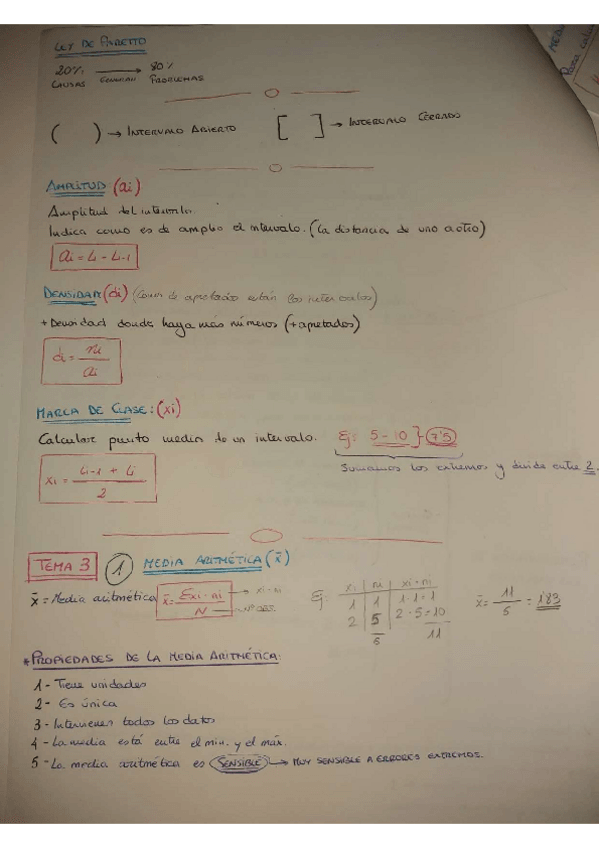 LEY DE PARETO
20% → 80%
CAUSAS GENERAN PROBLEMAS
( ) → INTERVALO ABIERTO [ ] → INTERVALO CERRADO
AMPLITUD (ai)
Amplitud del intervalo.
Indica como es de amplio el intervalo. (La distancia de uno a otro)
ai = Li - Li-1
DENSIDAD (di) (como de apretados están los intervalos)
+ Densidad donde haya más números (+ apretados)
di = ni / ai
MARCA DE CLASE: (xi)
Calcular punto medio de un intervalo. Ej: 5 - 10 } 7'5
Sumamos los extremos y divide entre 2.
xi = Li-1 + Li / 2
TEMA 3 1 MEDIA ARITMÉTICA (x̄)
x̄ = Media aritmética x̄ = Σxi·ni / N → xi·ni
Ej: xi | ni | xi·ni
1 | 1 | 1·1=1
2 | 5 | 2·5=10
5 11
x̄ = 11 / 5 = 1'83
* PROPIEDADES DE LA MEDIA ARITMÉTICA:
1 - Tiene unidades
2 - Es única
3 - Intervienen todos los datos
4 - La media está entre el mín. y el máx.
5 - La media aritmética es SENSIBLE → MUY SENSIBLE A ERRORES EXTREMOS.